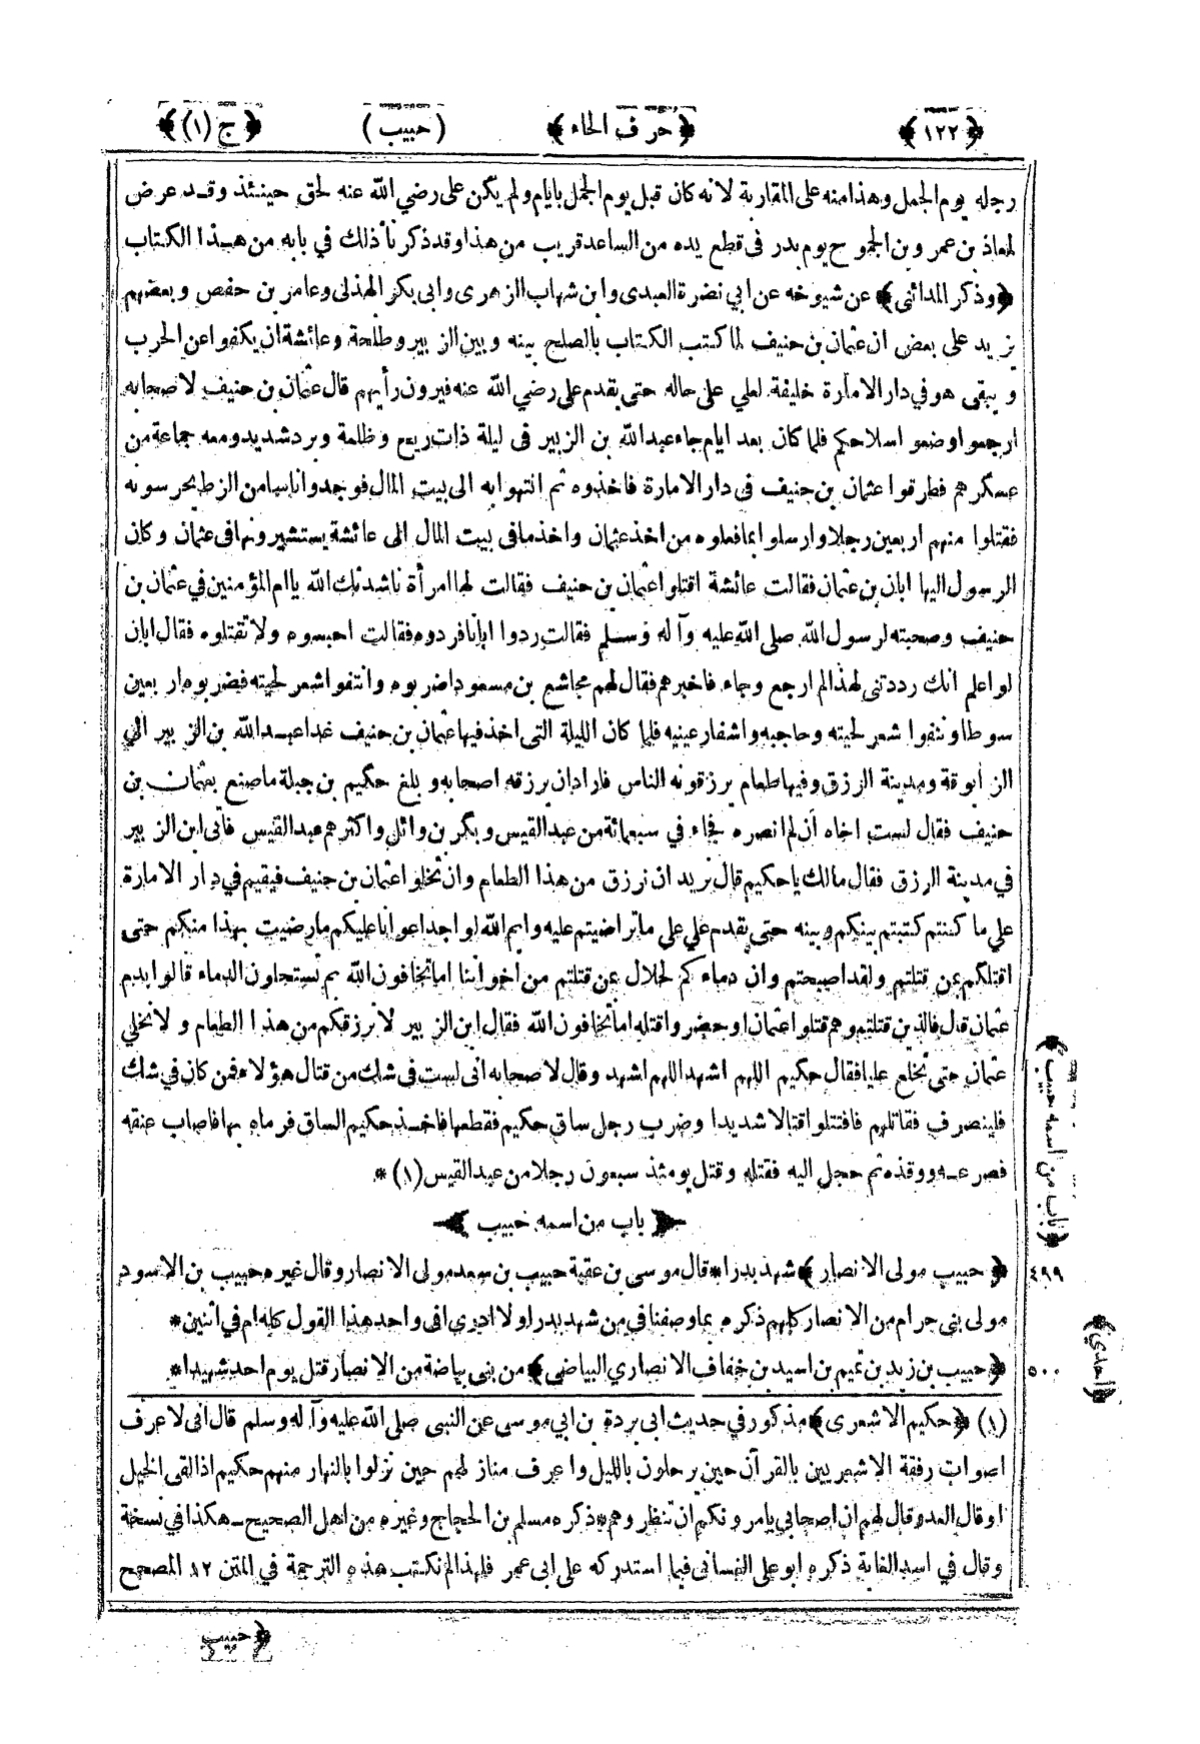 ﴿١٢٢﴾ ﴿حرف الحاء﴾ (حبيب) ﴿ج (١)﴾
رجله يوم الجمل وهذا منه على المقاربة لانه كان قبل يوم الجمل بايام ولم يكن على رضي الله عنه لحق حينئذ وقد عرض
لمعاذ بن عمر وبن الجموح يوم بدر فى قطع يده من الساعد قريب من هذا وقد ذكرنا ذلك في بابه من هذا الكتاب
﴿وذكر المدائنى﴾ عن شيوخه عن ابي نضرة العبدى وابن شهاب الزهرى وابى بكر الهذلى وعامر بن حفص وبعضهم
يزيد على بعض ان عثمان بن حنيف لما كتب الكتاب بالصلح بينه وبين الزبير وطلحة وعائشة ان يكفوا عن الحرب
ويبقى هو في دار الامارة خليفة لعلي على حاله حتى يقدم على رضي الله عنه فيرون رأيهم قال عثمان بن حنيف لاصحابه
ارجعوا وضعوا سلاحكم فلما كان بعد ايام جاء عبدالله بن الزبير فى ليلة ذات ريح وظلمة وبرد شديد ومعه جماعة من
عسكرهم فطرقوا عثمان بن حنيف في دار الامارة فاخذوه ثم انتهوا به الى بيت المال فوجدوا اناسا من الزط يحرسونه
فقتلوا منهم اربعين رجلا وارسلوا بما فعلوه من اخذ عثمان واخذ ما في بيت المال الى عائشة يستشيرونها فى عثمان وكان
الرسول اليها ابان بن عثمان فقالت عائشة اقتلوا عثمان بن حنيف فقالت لها امرأة ناشدتك الله يا ام المؤمنين في عثمان بن
حنيف وصحبته لرسول الله صلى الله عليه وآله وسلم فقالت ردوا ابانا فردوه فقالت احبسوه ولا تقتلوه فقال ابان
لو اعلم انك رددتنى لهذا لم ارجع وجاء فاخبرهم فقال لهم مجاشع بن مسعود اضربوه وانتفوا شعر لحيته فضربوه اربعين
سوطا ونتفوا شعر لحيته وحاجبه واشفار عينيه فلما كان الليلة التى اخذ فيها عثمان بن حنيف غدا عبدالله بن الزبير الي
الزابوقة ومدينة الرزق وفيها طعام يرزقونه الناس فاراد ان يرزقه اصحابه وبلغ حكيم بن جبلة ما صنع بعثمان بن
حنيف فقال لست اخاه ان لم انصره فجاء في سبعمائة من عبدالقيس وبكر بن وائل واكثرهم عبدالقيس فاتى ابن الزبير
في مدينة الرزق فقال مالك يا حكيم قال نريد ان نرزق من هذا الطعام وان تخلوا عثمان بن حنيف فيقيم في دار الامارة
علي ما كنتم كتبتم بينكم وبينه حتى يقدم علي علي ما تراضيتم عليه وايم الله لو اجد اعوانا عليكم ما رضيت بهذا منكم حتى
اقتلكم بمن قتلتم ولقد اصبحتم وان دماءكم لحلال بمن قتلتم من اخواننا اما تخافون الله بم تستحلون الدماء قالوا بدم
عثمان قال فالذين قتلتموهم قتلوا عثمان او حضروا قتله اما تخافون الله فقال ابن الزبير لا نرزقكم من هذا الطعام ولا نخلي
عثمان حتى تخلع عليا فقال حكيم اللهم اشهد اللهم اشهد وقال لاصحابه انى لست فى شك من قتال هؤلاء فمن كان في شك
فلينصرف فقاتلهم فاقتتلوا قتالا شديدا وضرب رجل ساق حكيم فقطعها فاخذ حكيم الساق فرماه بها فاصاب عنقه
فصرعه ووقذه ثم حجل اليه فقتله وقتل يومئذ سبعون رجلا من عبدالقيس (١) *
باب من اسمه حبيب
﴿باب من اسمه حبيب﴾
﴿حبيب مولى الانصار﴾ شهد بدرا * قال موسى بن عقبة حبيب بن سعد مولى الانصار وقال غيره حبيب بن الاسود ٤٩٩
مولى بنى حرام من الانصار كلهم ذكره بما وصفنا في من شهد بدرا ولا ادرى افى واحد هذا القول كله ام في اثنين *
﴿حبيب بن زيد بن تميم بن اسيد بن خفاف الانصاري البياضي﴾ من بنى بياضة من الانصار قتل يوم احد شهيدا * ٥٠٠
﴿احدي﴾
(١) ﴿حكيم الاشعرى﴾ مذكور في حديث ابى بردة بن ابي موسى عن النبى صلى الله عليه وآله وسلم قال انى لاعرف
اصوات رفقة الاشعريين بالقرآن حين يرحلون بالليل واعرف منازلهم حين نزلوا بالنهار منهم حكيم اذا لقى الخيل
او قال العدو قال لهم ان اصحابي يامرونكم ان تنظروهم * ذكره مسلم بن الحجاج وغيره من اهل الصحيح ـ هكذا في نسخة
وقال في اسد الغابة ذكره ابو على الغسانى فيما استدركه على ابى عمر فلهذا لم نكتب هذه الترجمة في المتن ١٢ المصحح
﴿حبيب